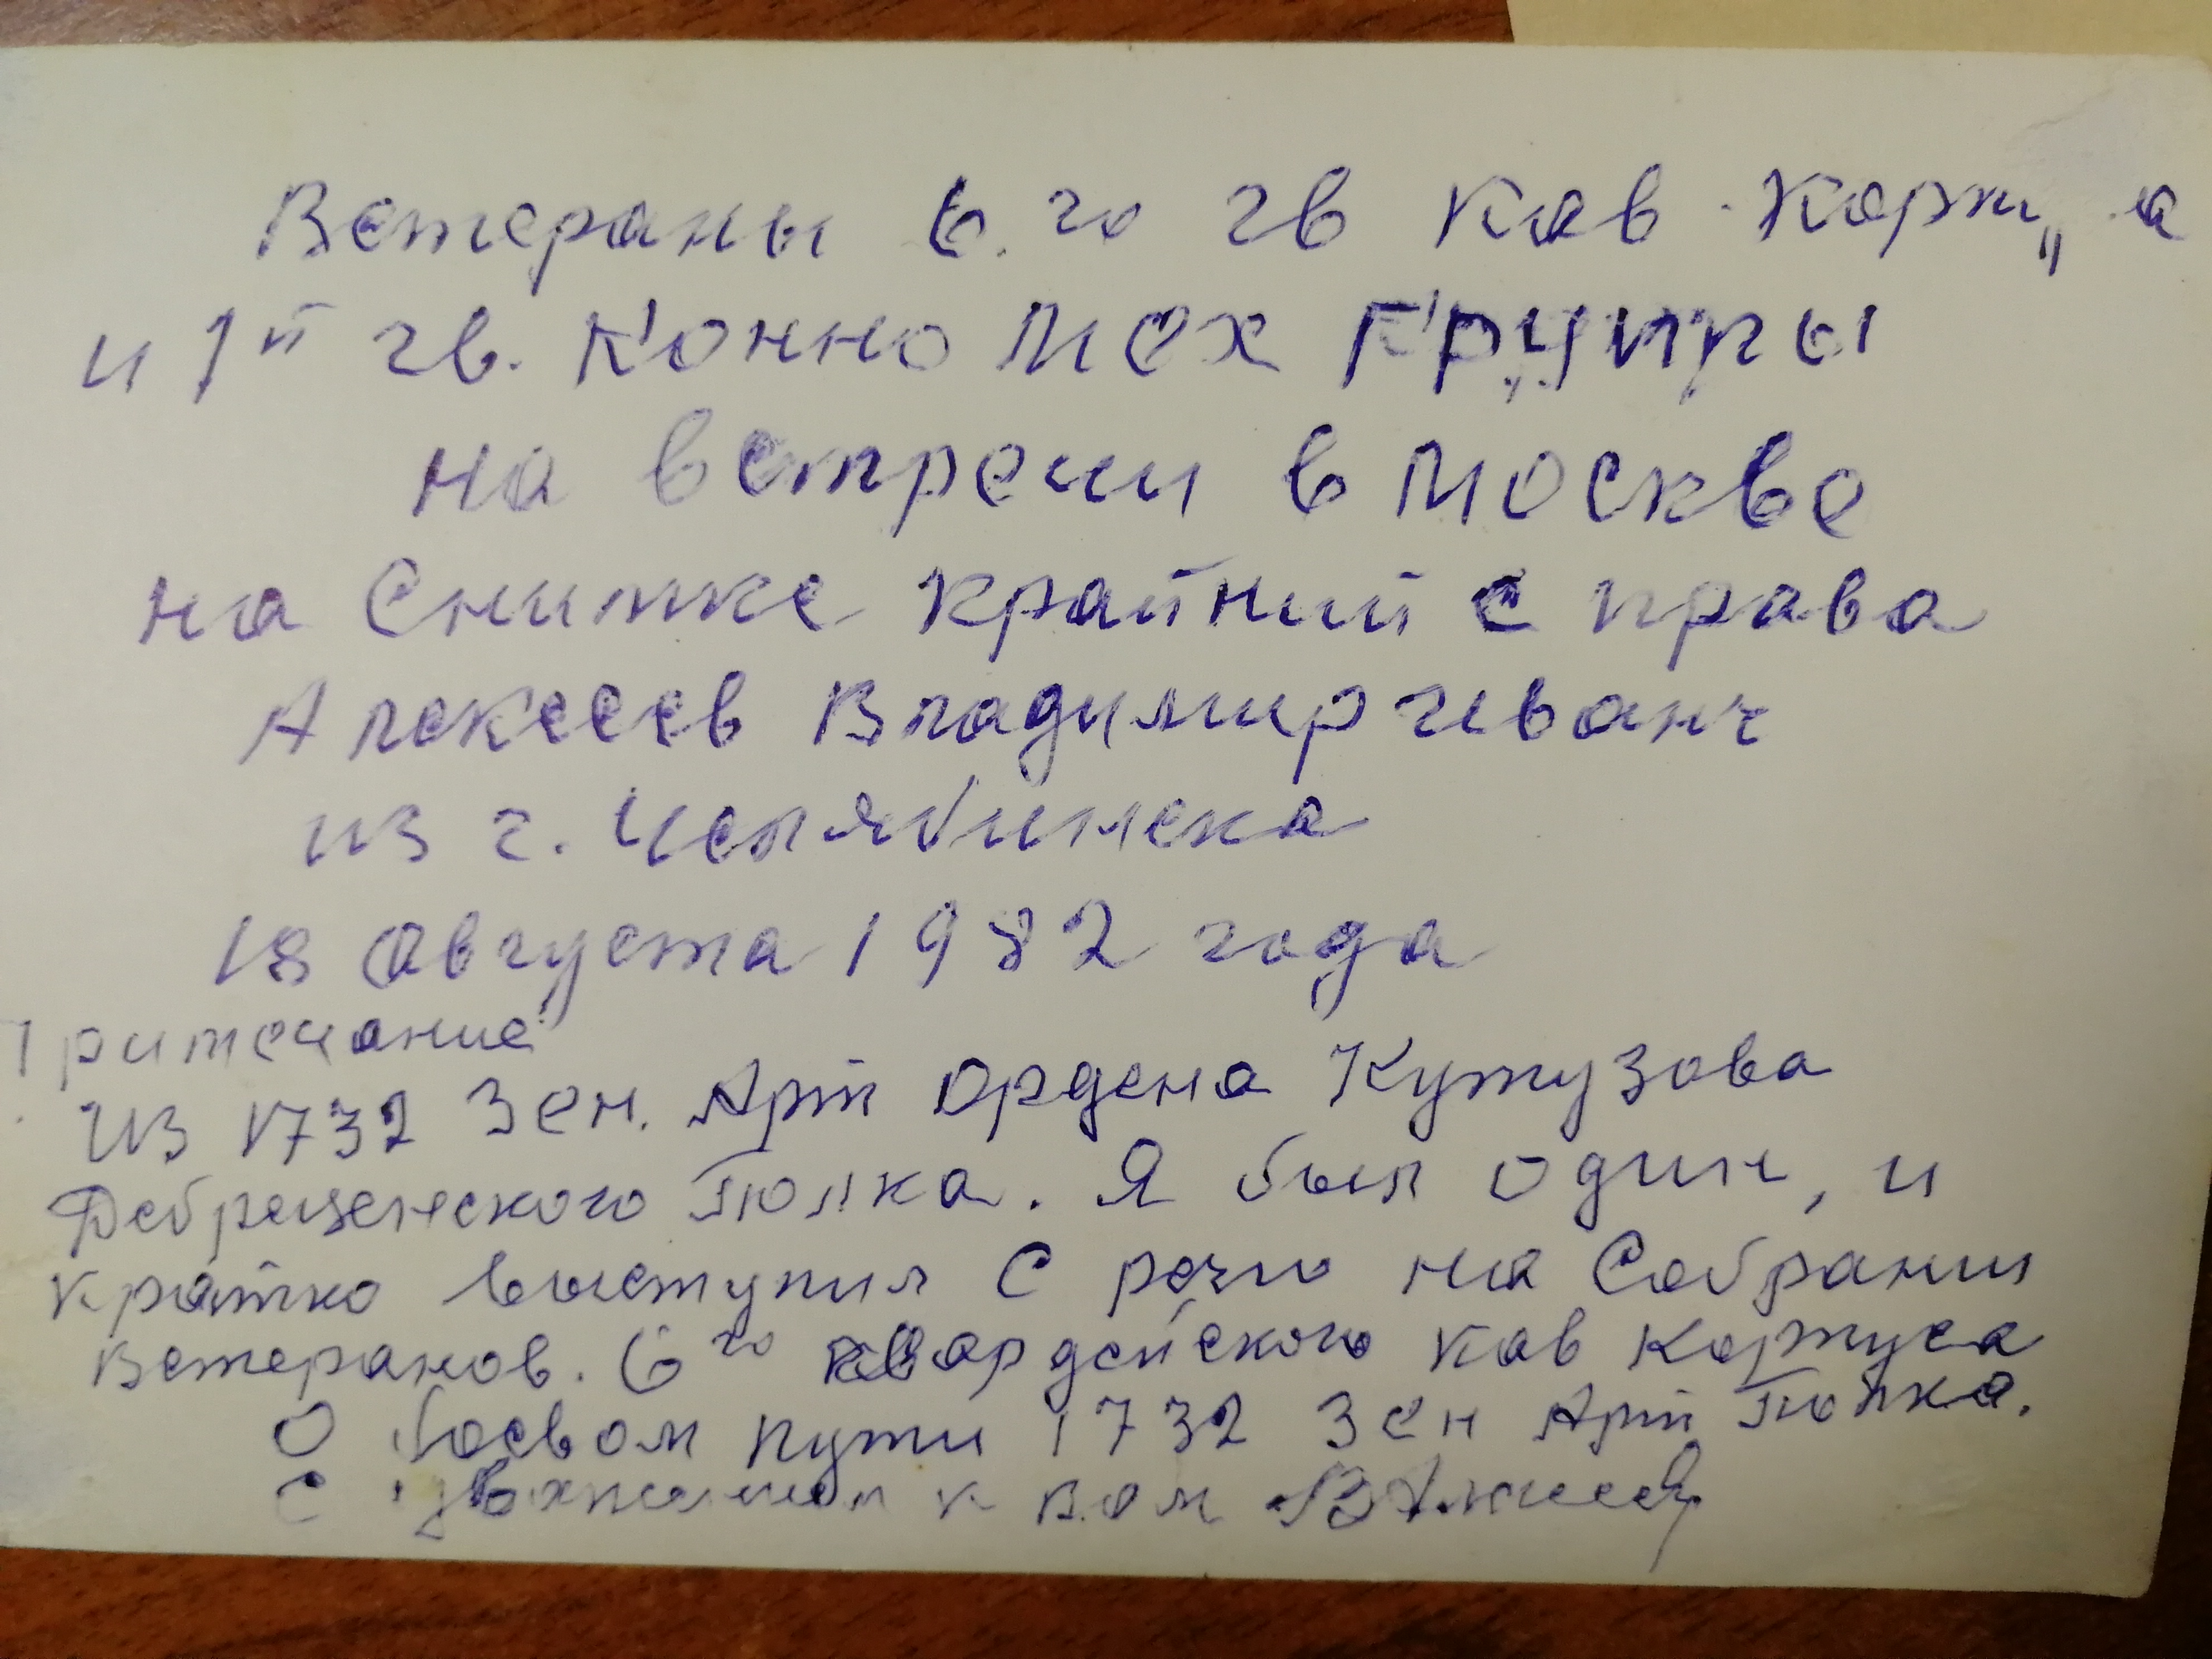 Ветераны 6.го гв Кав. Корп„а
и 1й гв. Конно Мех Группы
на встречи в Москве
на Снимке крайний с права
Алексеев Владимир Иванч
из г. Челябинска
18 августа 1982 года
Примечание
Из 1732 Зен. Арт Ордена Кутузова
Дебреценского Полка. Я был один, и
кратко выступил с речю на Собрании
Ветеранов. 6го гвардейского Кав Корпуса
О боевом пути 1732 Зен Арт Полка.
С уважением к вам ВАлексеев